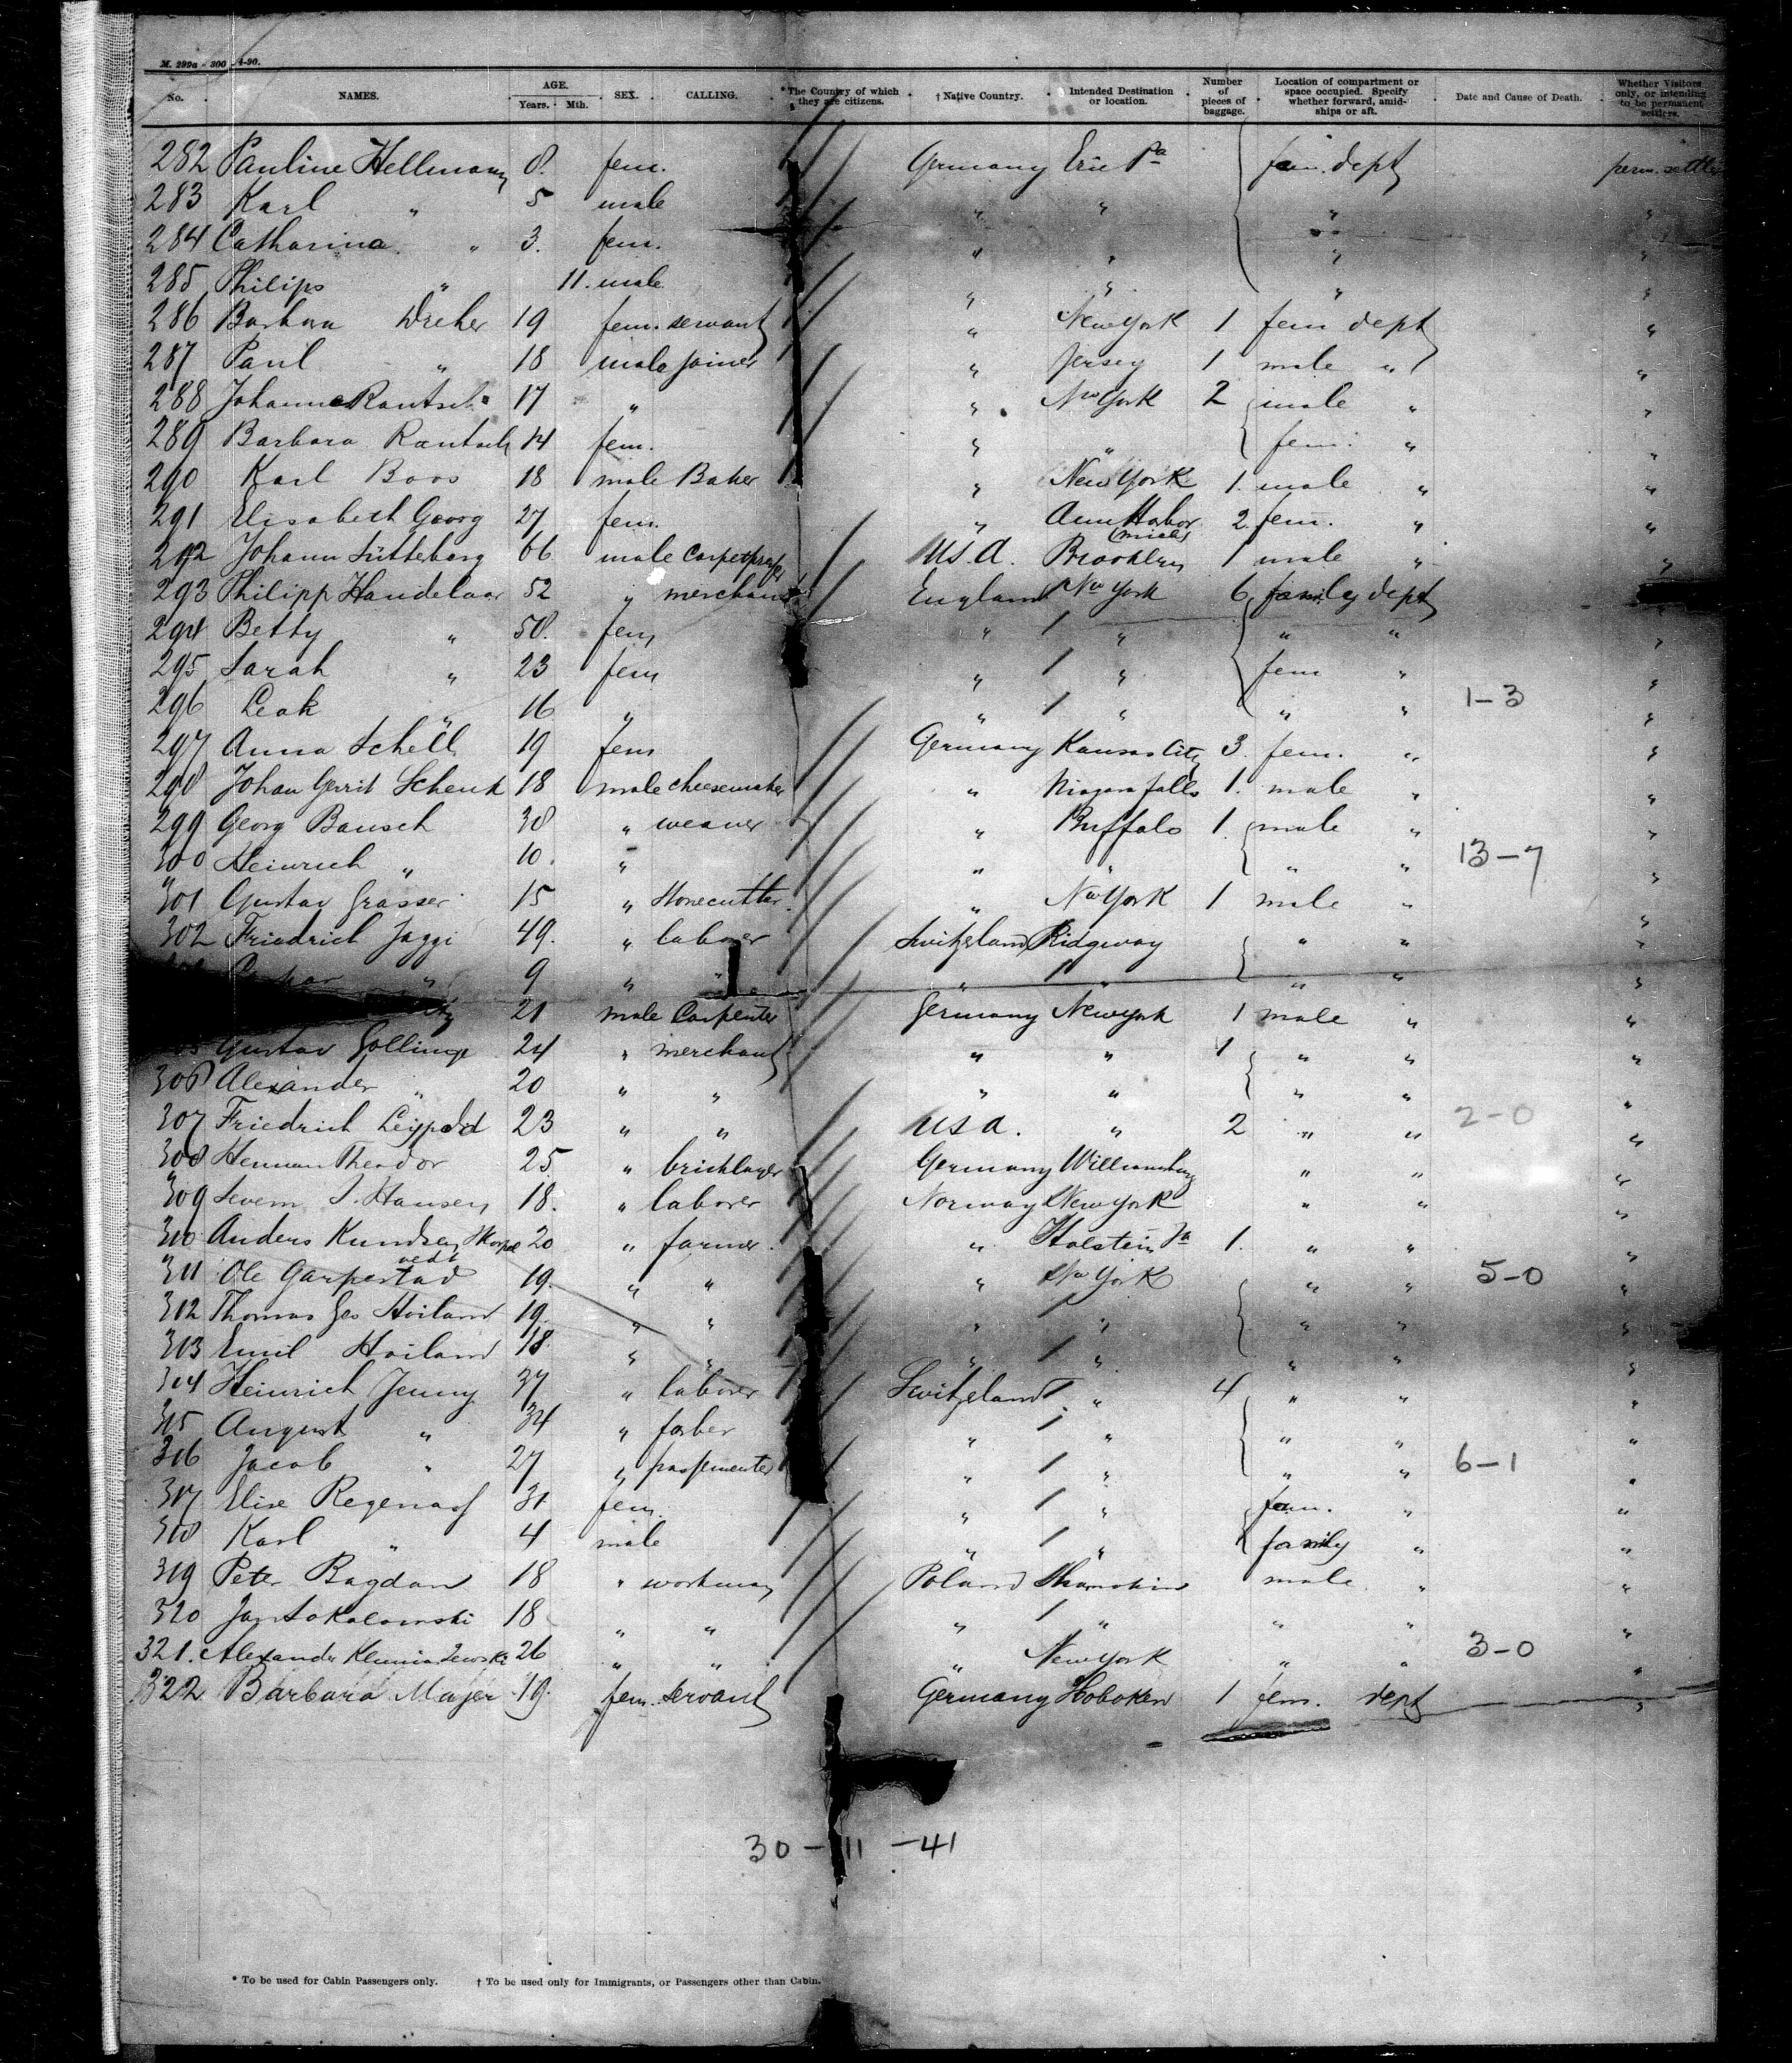 M. 299a - 300 - 4-90.
No. NAMES. AGE. Years. Mth. SEX. CALLING. * The Country of which they are citizens. † Native Country. Intended Destination or location. Number of pieces of baggage. Location of compartment or space occupied. Specify whether forward, amidships or aft. Date and Cause of Death. Whether Visitors only, or intending to be permanent settlers.
282 Pauline Hellmann 8. fem. Germany Erie Pa fem. dept perm. settler
283 Karl " 5 male " " " "
284 Catharina " 3. fem. " " " "
285 Philips " 11. male " " " "
286 Barbara Dreher 19 fem. servant " New York 1 fem dept "
287 Paul " 18 male joiner " Jersey 1 male " "
288 Johann Rantsch 17 " " New York 2 male " "
289 Barbara Rantsch 14 fem. " " fem. " "
290 Karl Boos 18 male Baker " New York 1. male " "
291 Elisabeth Georg 27 fem. " Ann Harbor 2 fem. " "
(Mich)
292 Johann Lütteborg 66 male U.S.A. Brooklyn 1 male " "
293 Philipp Handelaar 52 " merchant England New York 6 family dept
294 Betty " 50. fem " " " " "
295 Sarah " 23 fem " " fem " "
296 Leah " 16 " " " " " 1-3 "
297 Anna Schell 19 fem Germany Kansas City 3. fem. " "
298 Johan Gerrit Schenk 18 male cheesemaker " Niagara falls 1. male " "
299 Georg Bausch 38 " weaver " Buffalo 1. male " "
300 Heinrich " 10. " " " " " 13-7 "
301 Gustav Grasser 15 " Stonecutter " New York 1 male " "
302 Friedrich Jaggi 49. " laborer Switzeland Ridgway " " "
" 9 " " " " " " "
21 male Carpenter Germany New york 1 male " "
Gustav Gollinge 24 " merchant " " 1 " " "
306 Alexander " 20 " " " " " " "
307 Friedrich Leypold 23 " " U S A. " 2 " " 2-0 "
308 Herman Theodor 25. " bricklayer Germany Williamsburg " " "
309 J. Hansen 18. " laborer Norway New York " " "
310 Anders Kundsen 20 " farmer. " Holstein Ia 1. " " "
311 Ole Garpestad 19. " " " New York " " 5-0 "
312 Thomas Geo Hoiland 19. " " " " " " "
313 Emil Hoiland 18. " " " " " " "
314 Heinrich Jenny 37 " laborer Switzeland " 4 " " "
315 August " 34 " farber " " " " "
316 Jacob " 27 " passementer " " " " 6-1 "
317 Elise Regenass 31 fem. " " fem. " "
318 Karl " 4 male " " family " "
319 Peter Bagdan 18 " workman Poland Shamokin male " "
320 Jan Sokolowski 18 " " " " " " "
321. Alexander 26 " " " New York " " 3-0 "
322 Barbara Majer 19. fem. servant Germany Hoboken 1 fem. dept "
30 - 11 - 41
* To be used for Cabin Passengers only. † To be used only for Immigrants, or Passengers other than Cabin.